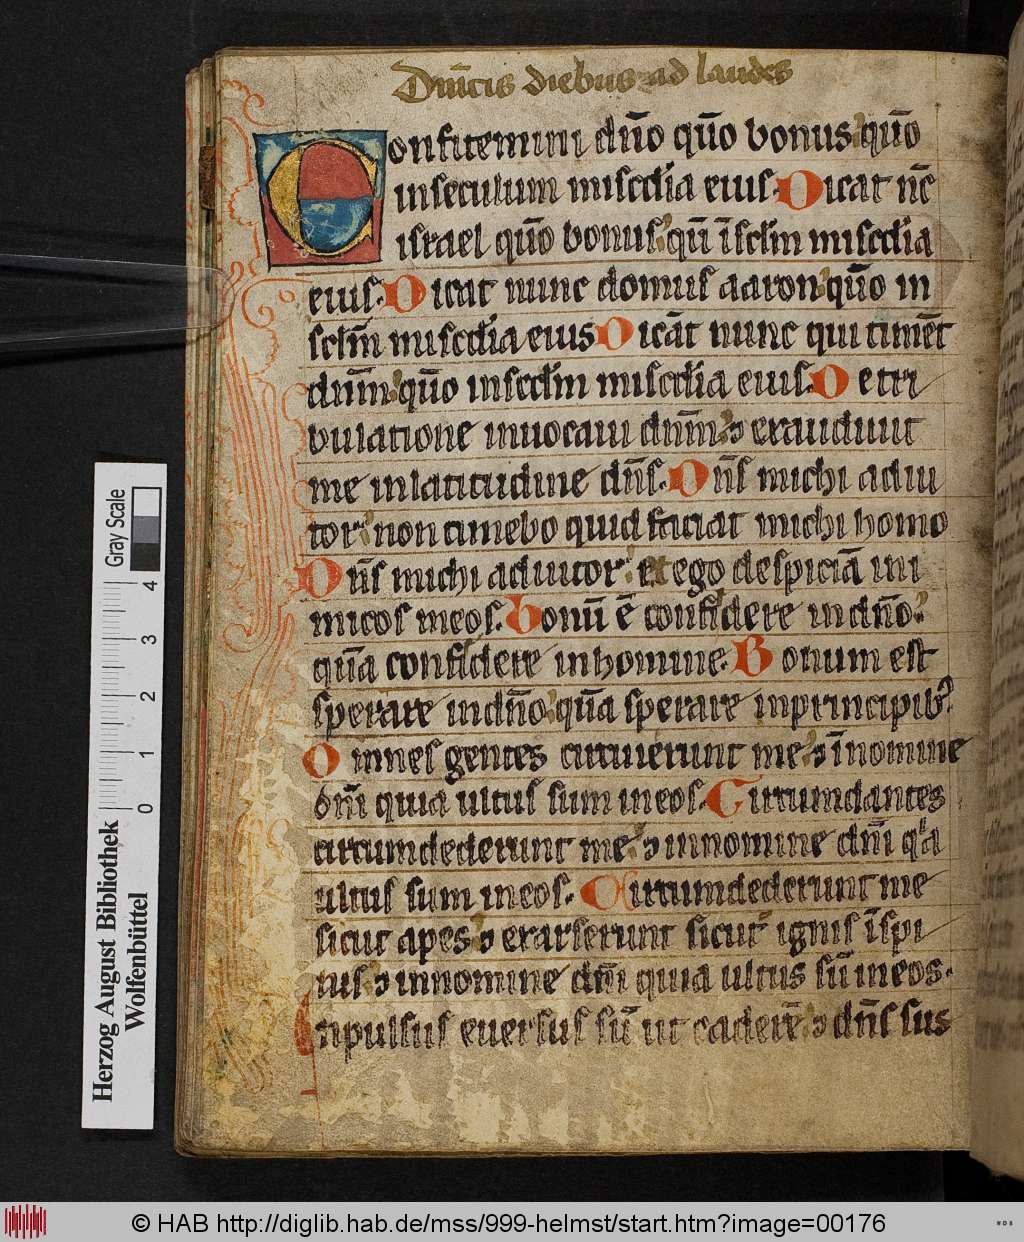 Dn̄icis diebus ad laudes
Confitemini dn̄o qūo bonus quō
inseculum misc̄dia eius. Dicat nc̄
israel qūo bonus: qm̄ ī sclm̄ misc̄dia
eius. Dicat nunc domus aaron qūo in
sclm̄ misc̄dia eius Dicāt nunc qui timēt
dn̄m qūo insclm̄ misc̄dia eius. De tri
bulatione inuocaui dn̄m ⁊ exaudiuit
me inlatitudine dn̄s. Dn̄s michi adiu
tor non timebo quid faciat michi homo
Dn̄s michi adiutor et ego despiciā ini
micos meos. bonū ē confidere indn̄o
qūa confidere inhomine. Bonum est
sperare indn̄o qūa sperare inprincipib᷒
Omnes gentes circuierunt me ⁊ ī nomine
dn̄i quia ultus sum ineos. Circumdantes
circumdederunt me ⁊ innomine dn̄i qͥa
ultus sum ineos. Circumdederunt me
sicut apes ⁊ exarserunt sicut ignis ī spi
nis ⁊ innomine dn̄i quia ultus sū ineos.
Inpulsus euersus sū ut caderē ⁊ dn̄s sus
Herzog August Bibliothek
Wolfenbüttel
0 1 2 3 4
Gray Scale
© HAB http://diglib.hab.de/mss/999-helmst/start.htm?image=00176